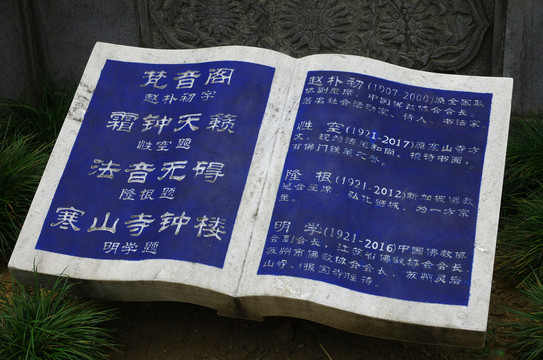 梵音阁
赵朴初 字
霜钟天籁
性空题
法音无碍
隆根题
寒山寺钟楼
明学题
赵朴初(1907-2000)原全国政
协副主席，中国佛教协会会长。
著名社会活动家、诗人、书法家
性空(1921-2017)原寒山寺方
丈，现为法主和尚。雅诗书画，
有佛门铁笔之誉。
隆根(1921-2012)新加坡佛教
总会主席，弘化狮城，为一方宗
主。
明学(1921-2016)中国佛教协
会副会长，江苏省佛教协会会长，
苏州市佛教协会会长，苏州灵岩
山寺、报国寺住持。